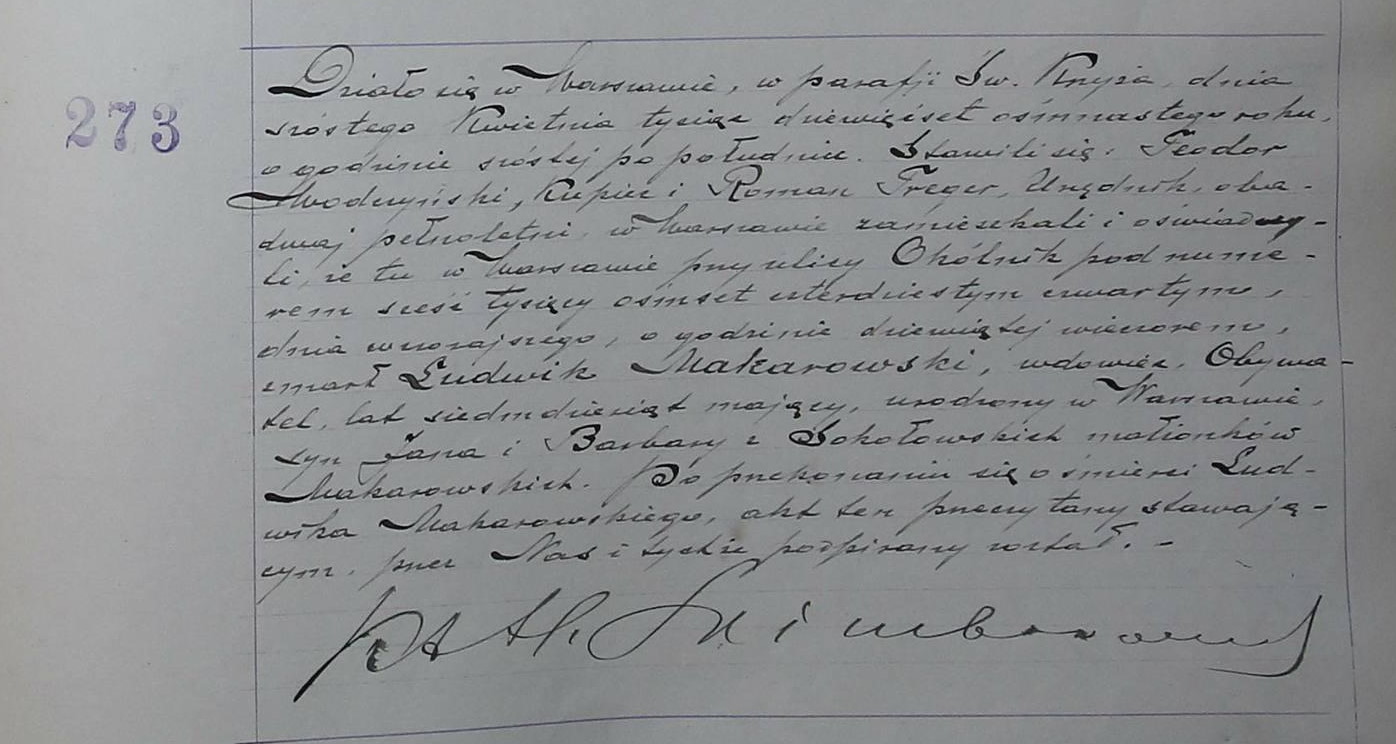 273
Działo się w Warszawie, w parafji Św. Krzyża, dnia
szóstego Kwietnia tysiąc dziewięćset ośmnastego roku,
o godzinie szóstej po południu. Stawili się: Teodor
Kupiec i Roman Treger, Urzędnik, oba-
dwaj pełnoletni, w Warszawie zamieszkali i oświadczy-
li, że tu w Warszawie przy ulicy Okólnik pod nume-
rem sześć tysięcy ośmset czterdziestym czwartym,
dnia wczorajszego, o godzinie dziewiątej wieczorem,
zmarł Ludwik Makarowski, wdowiec, Obywa-
tel, lat siedmdziesiąt mający, urodzony w Warszawie,
syn Jana i Barbary z Sokołowskich małżonków
Makarowskich. Po przekonaniu się o śmierci Lud-
wika Makarowskiego, akt ten przeczytany stawają-
cym, przez Nas i tychże podpisany został. -